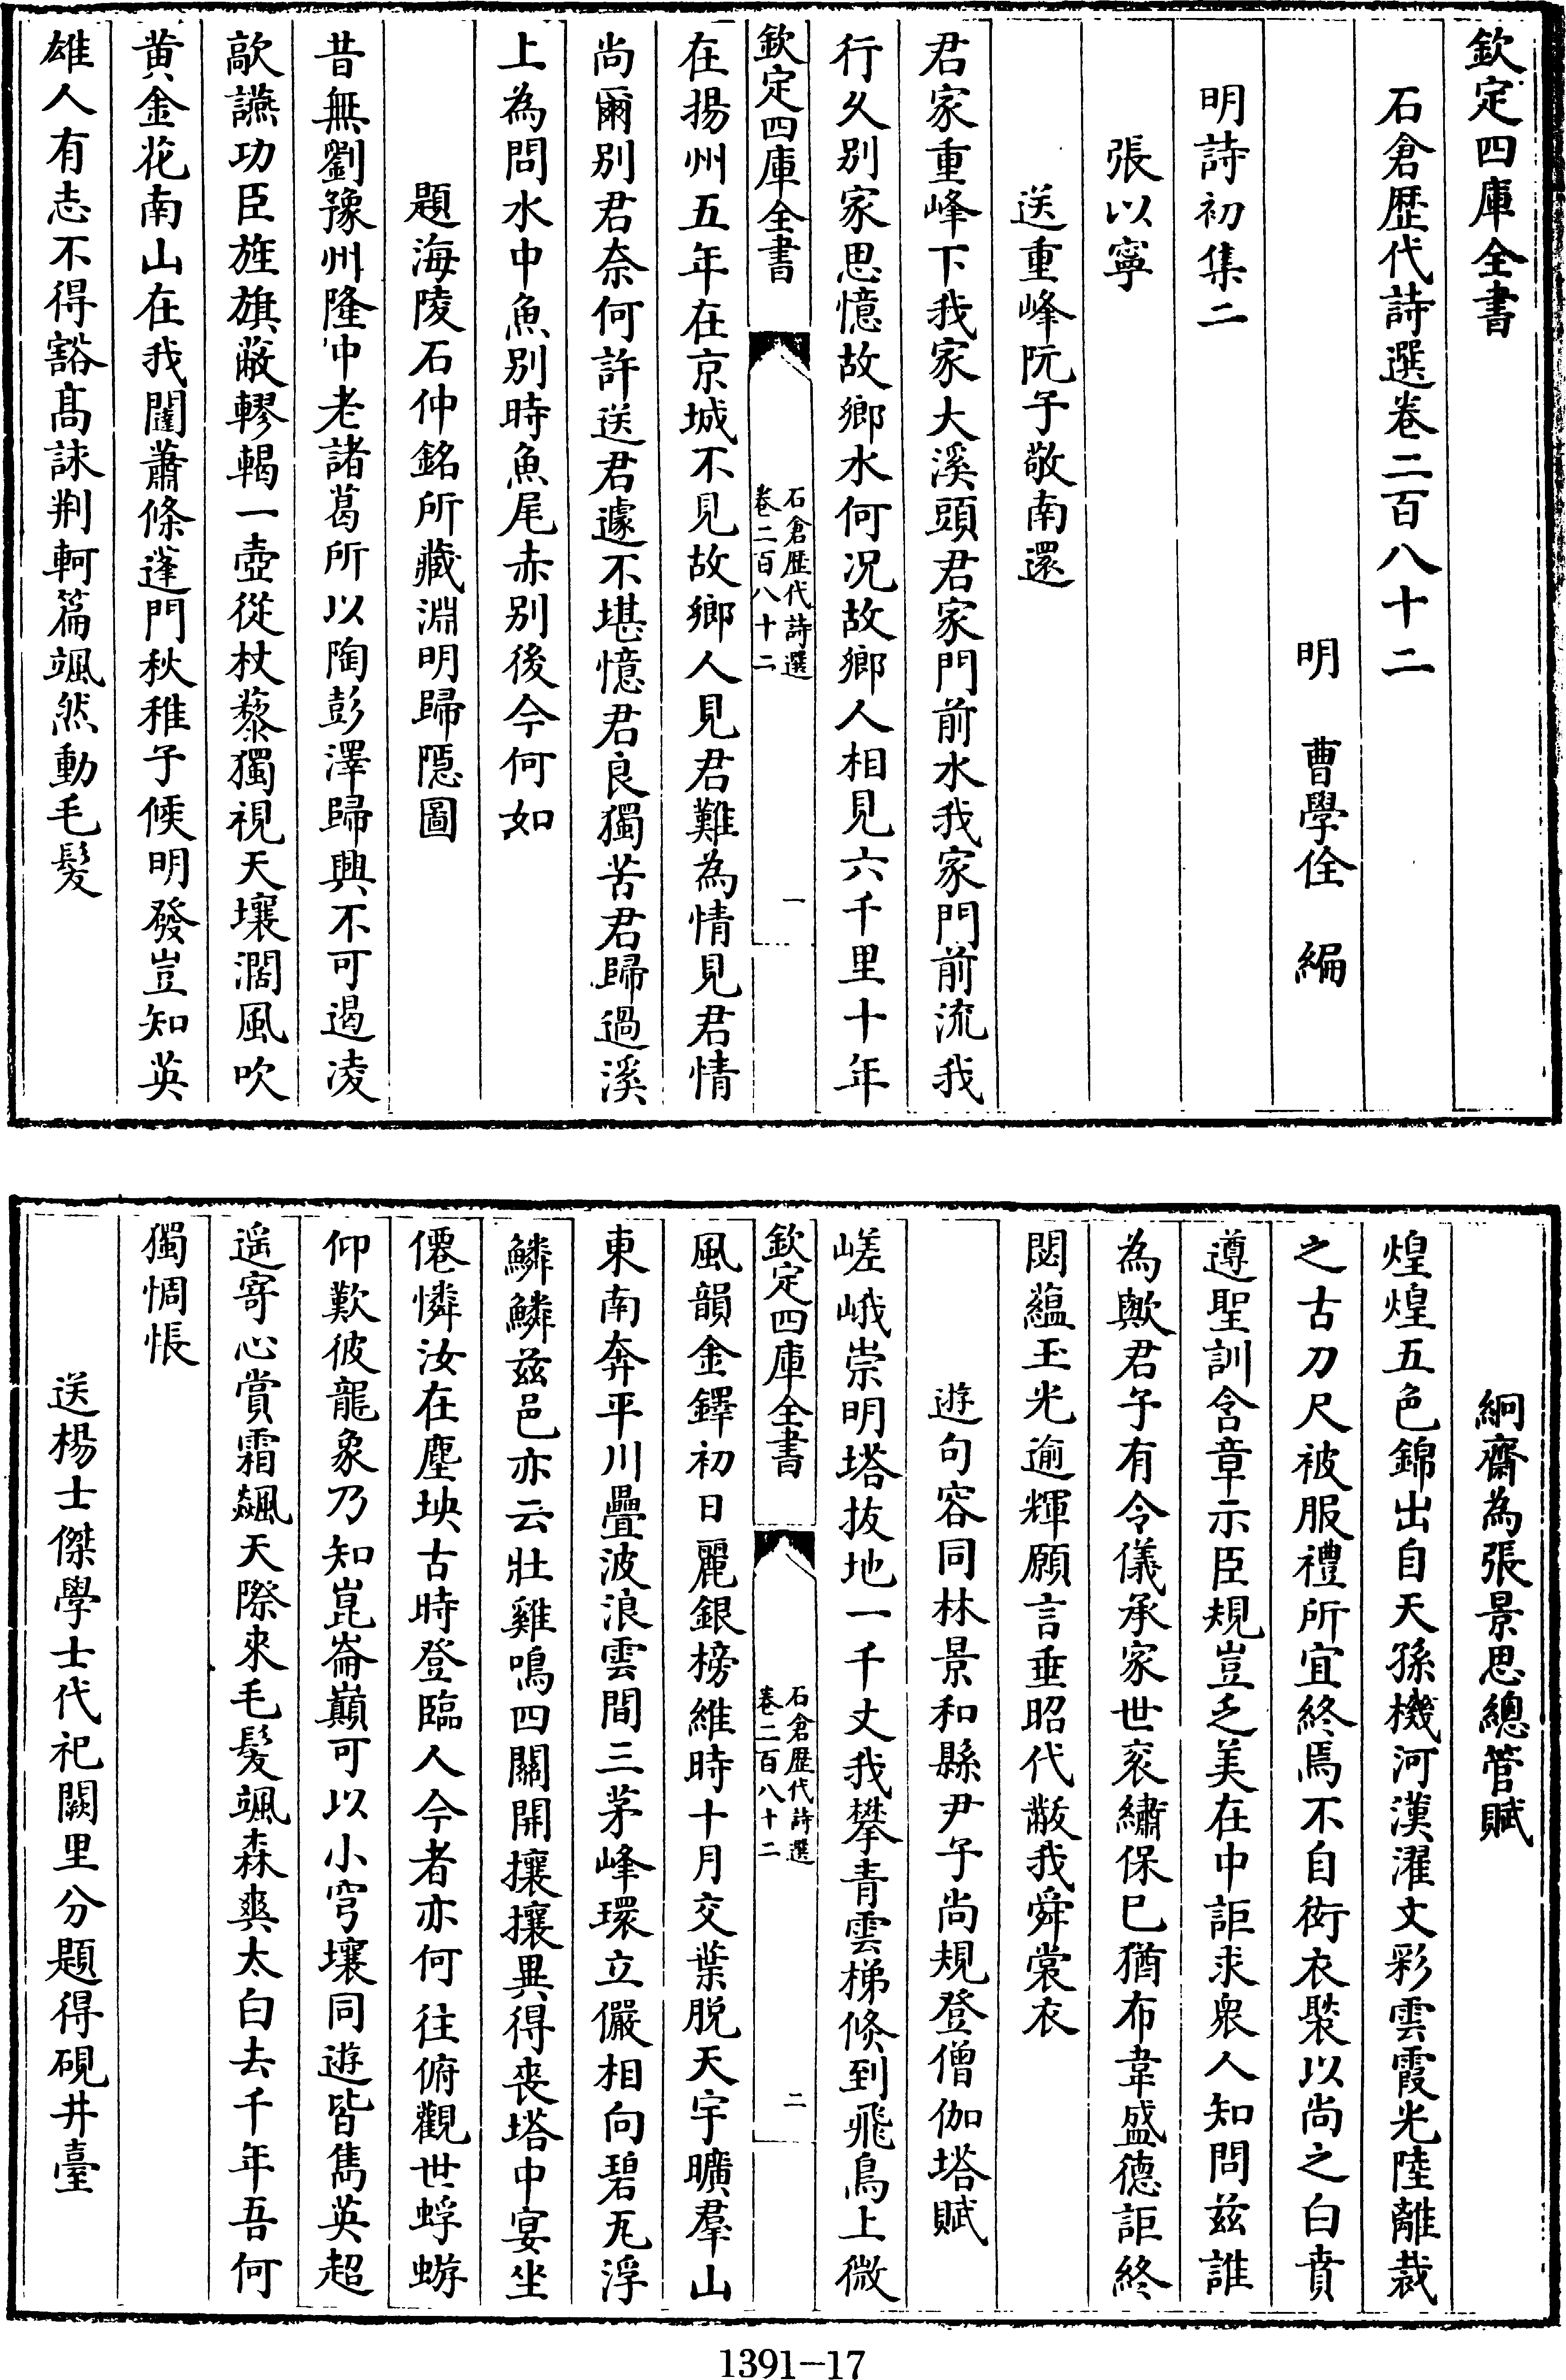 欽定四庫全書
石倉歷代詩選卷二百八十二
明 曹學佺 編
明詩初集二
張以寧
送重峰阮子敬南還
君家重峰下我家大溪頭君家門前水我家門前流我
行久別家思憶故鄉水何況故鄉人相見六千里十年
欽定四庫全書
石倉歷代詩選
卷二百八十二
一
在揚州五年在京城不見故鄉人見君難為情見君情
尚爾別君奈何許送君遽不堪憶君良獨苦君歸過溪
上為問水中魚別時魚尾赤別後今何如
題海陵石仲銘所藏淵明歸隱圖
昔無劉豫州隆中老諸葛所以陶彭澤歸興不可遏凌
歊讌功臣旌旗蔽轇轕一壺從杖藜獨視天壤濶風吹
黃金花南山在我闥蕭條蓬門秋稚子候明發豈知英
雄人有志不得豁高詠荆軻篇颯然動毛髮
絅齋為張景思總管賦
煌煌五色錦出自天孫機河漢濯文彩雲霞光陸離裁
之古刀尺被服禮所宜終焉不自衒衣褧以尚之白賁
遵聖訓含章示臣規豈乏美在中詎求衆人知問兹誰
為歟君子有令儀承家世衮繡保已猶布韋盛德詎終
閟蘊玉光逾輝願言垂昭代黻我舜裳衣
遊句容同林景和縣尹子尚規登僧伽塔賦
嵯峨崇明塔拔地一千丈我攀青雲梯倏到飛鳥上微
欽定四庫全書
石倉歷代詩選
卷二百八十二
二
風韻金鐸初日麗銀榜維時十月交葉脫天宇曠羣山
東南奔平川疊波浪雲間三茅峰環立儼相向碧瓦浮
鱗鱗兹邑亦云壯雞鳴四關開攘攘異得喪塔中宴坐
僊憐汝在塵坱古時登臨人今者亦何往俯觀世蜉蝣
仰歎彼龍象乃知崑崙巔可以小穹壤同遊皆雋英超
遥寄心賞霜飆天際來毛髮颯森爽太白去千年吾何
獨惆悵
送楊士傑學士代祀闕里分題得硯井臺
1391-17